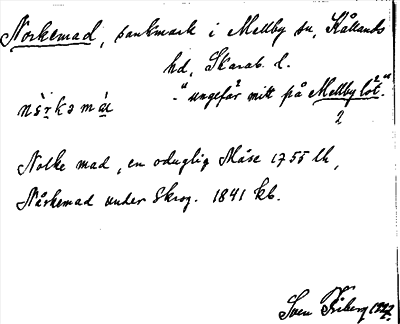 Norkemad, sankmark i Mellby sn, Kållands
hd, Skarab. l.
"ungefär mitt på Mellby lot."
2
Nolke mad, en oduglig Måse 1755 lh,
Nårkemad under Skog. 1841 kb.
Sven